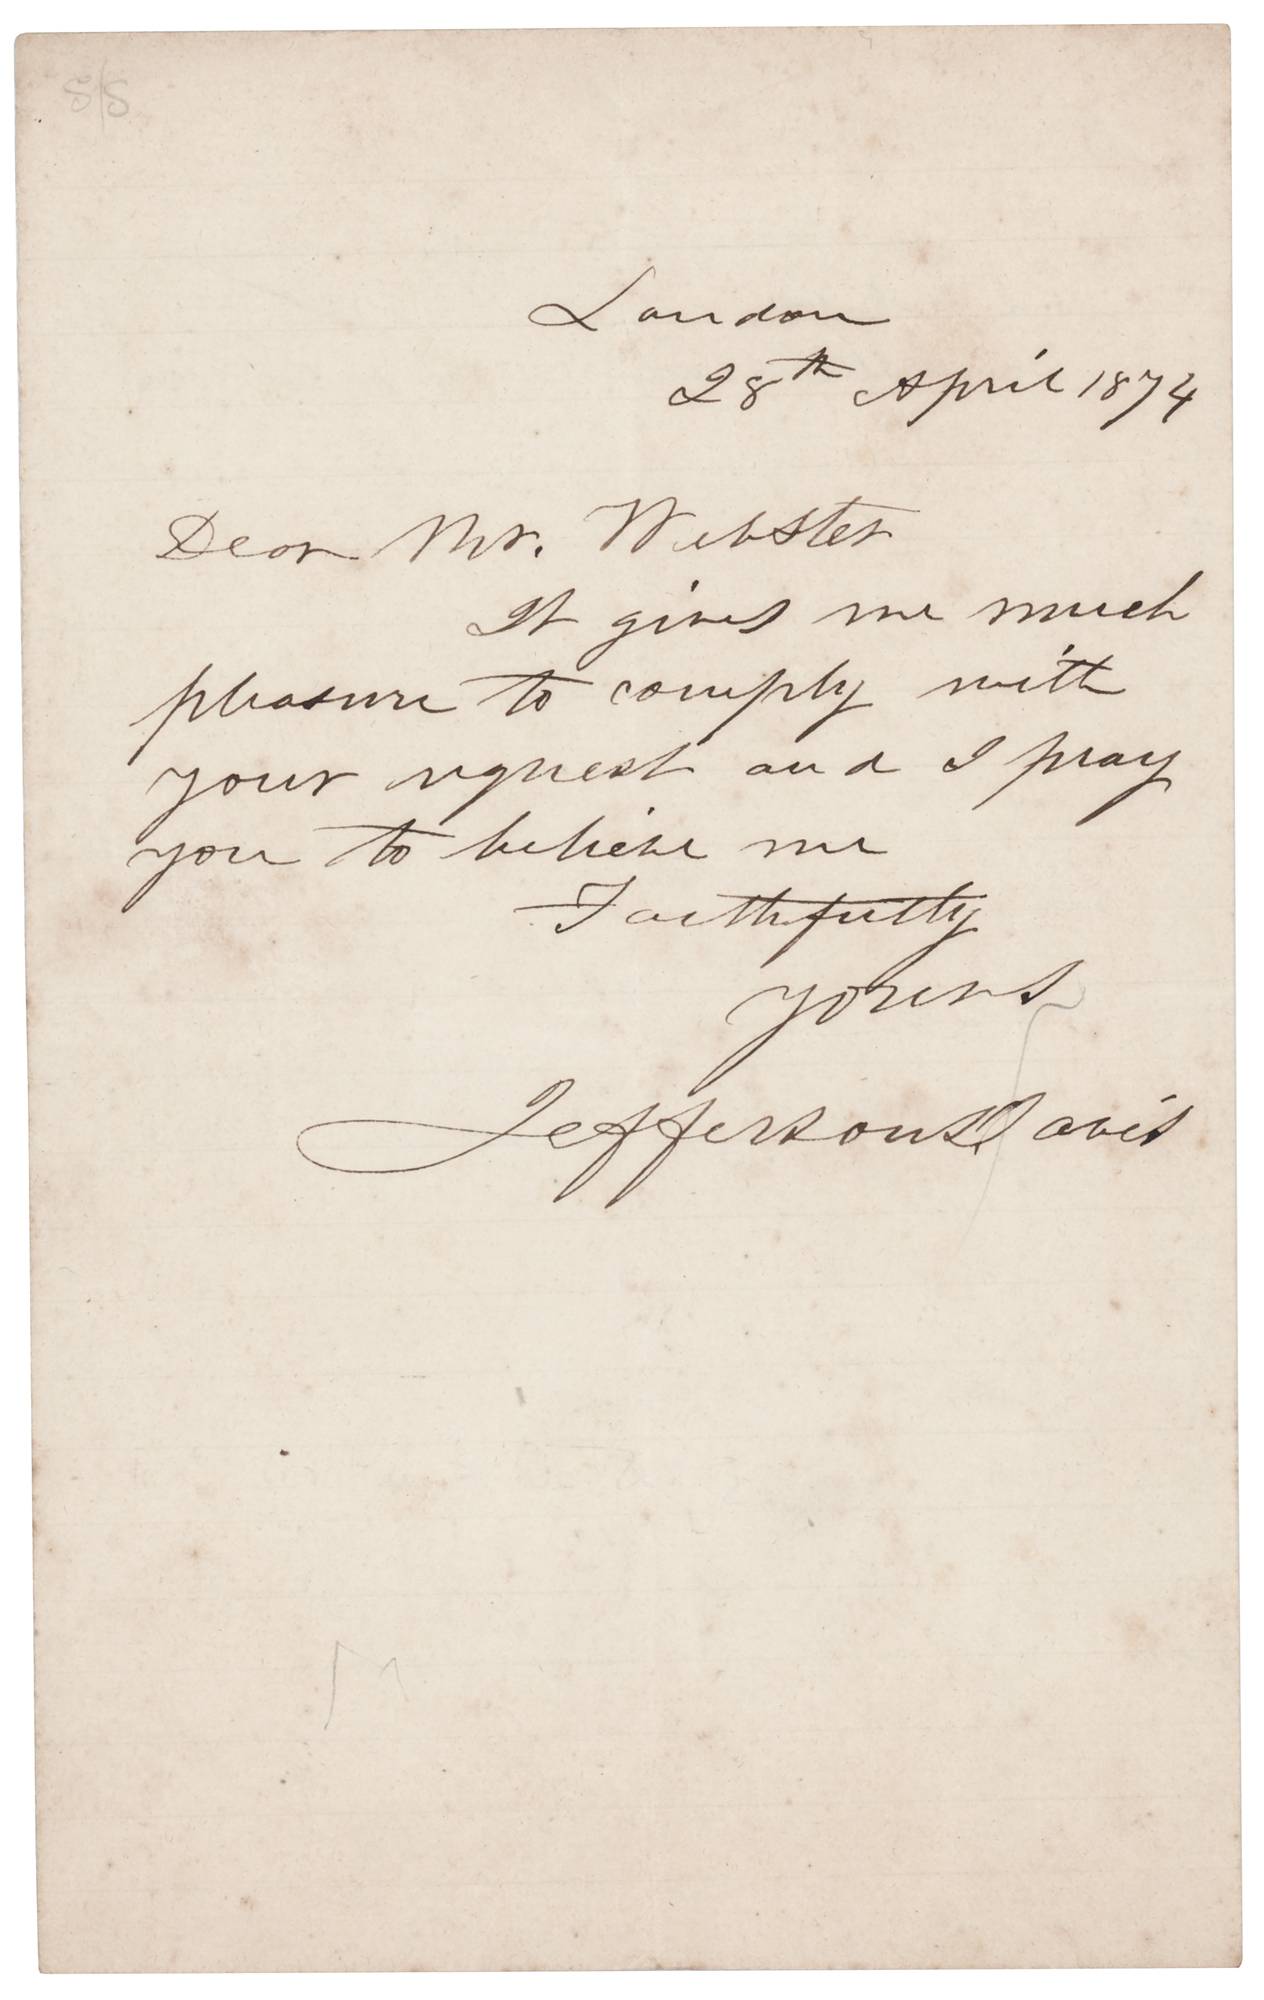 S/S
London
28th April 1874
Dear Mr. Webster
It gives me much
pleasure to comply with
your request and I pray
you to believe me
Faithfully
yours
Jefferson Davis